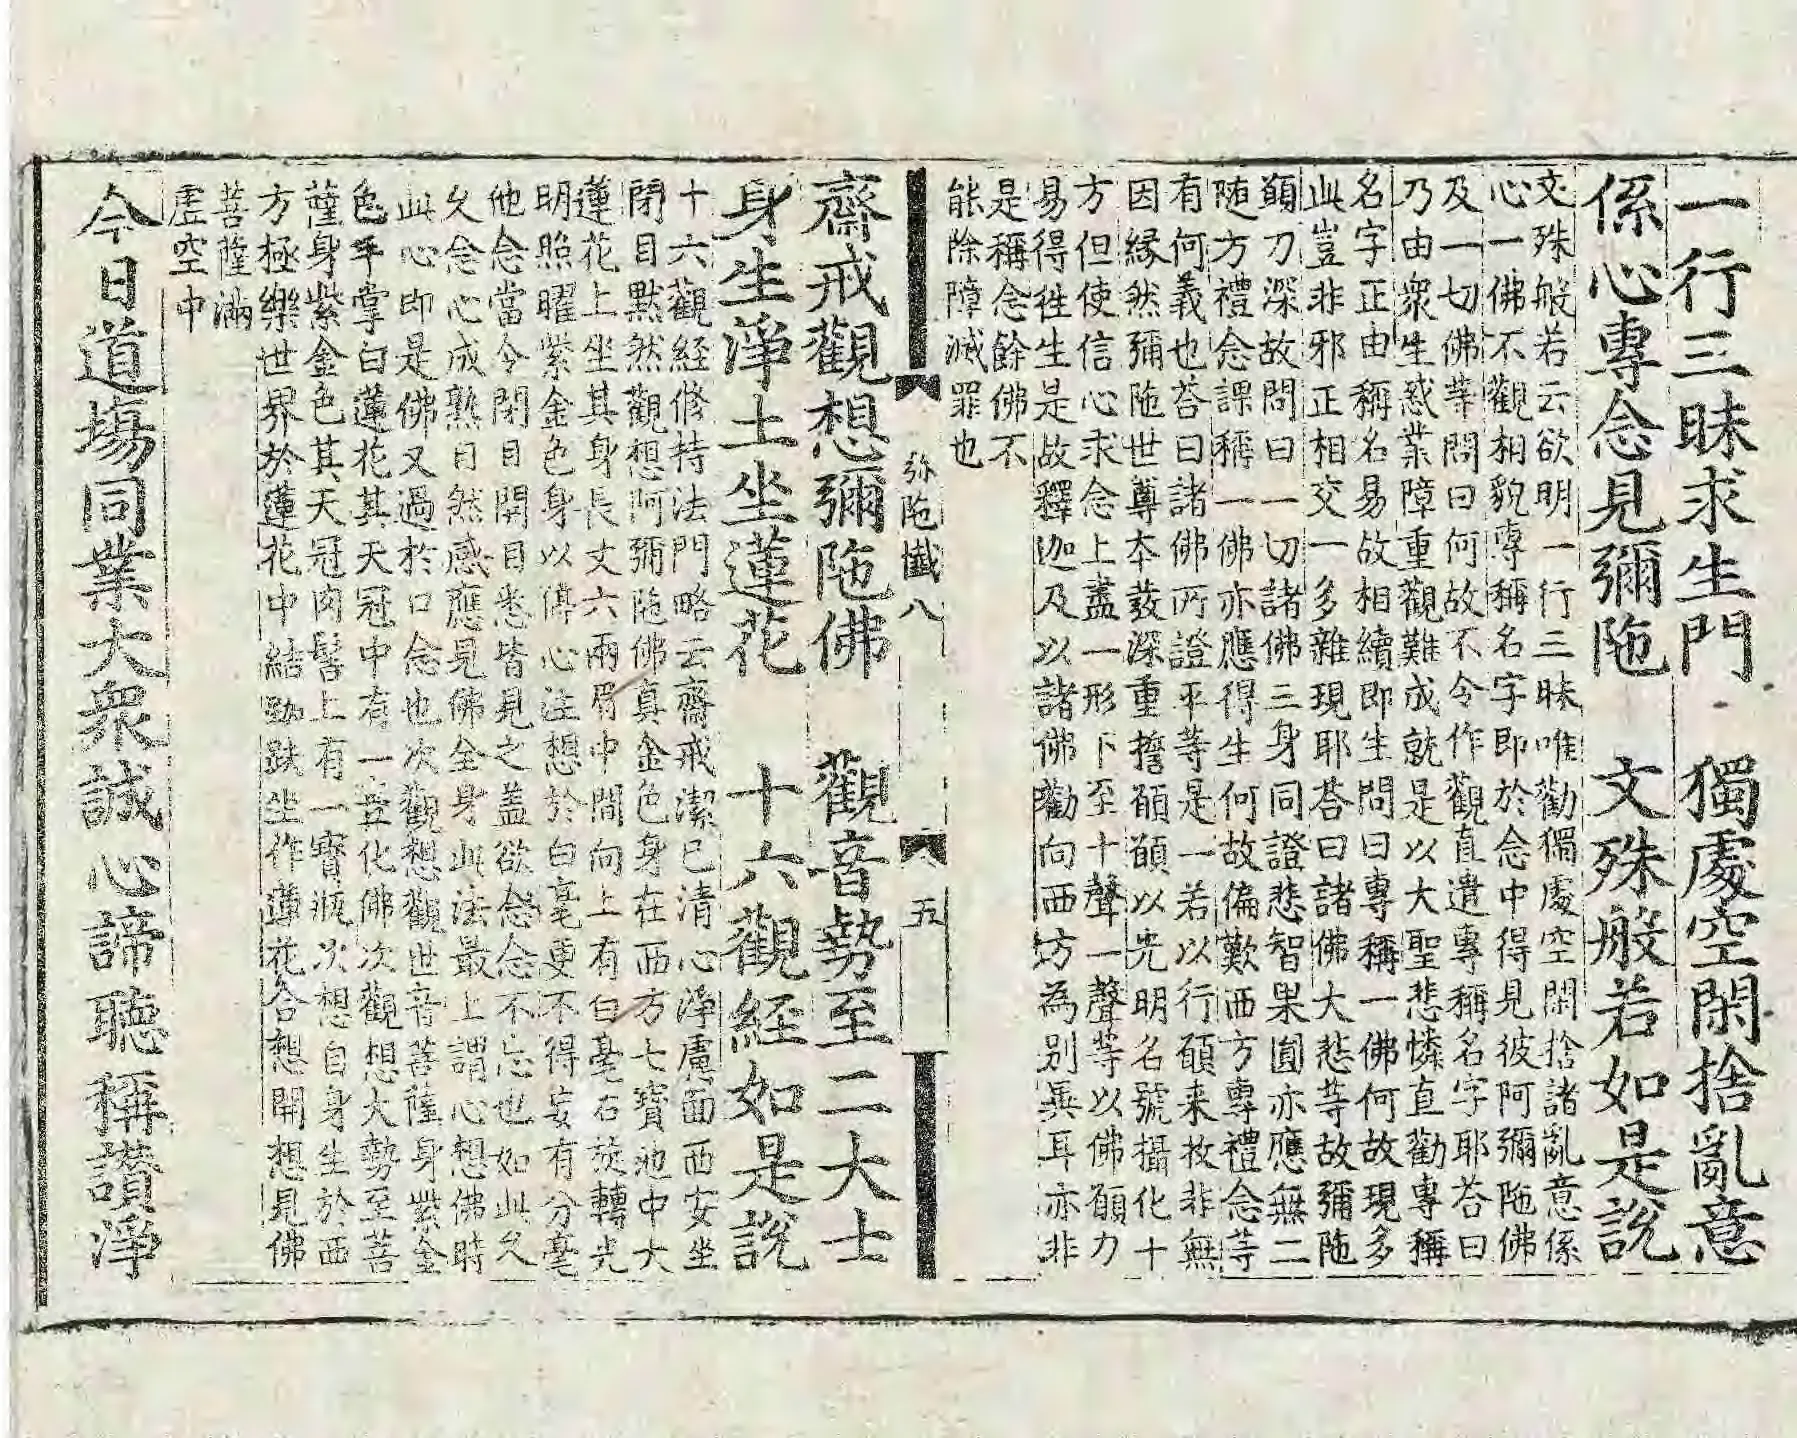 一行三昧求生門　獨處空閑捨亂意
係心專念見彌陁　文殊般若如是說
文殊般若云欲明一行三昧唯勸獨處空閑捨諸亂意係
心一佛不觀相貌專稱名字即於念中得見彼阿彌陁佛
及一切佛等問曰何故不令作觀直遣專稱名字耶荅曰
乃由衆生惑業障重觀難成就是以大聖悲憐直勸專稱
名字正由稱名易故相續即生問曰專稱一佛何故現多
此豈非邪正相交一多雜現耶荅曰諸佛大悲等故彌陁
願力深故問曰一切諸佛三身同證悲智果圓亦應無二
随方禮念課稱一佛亦應得生何故偏歎西方專禮念等
有何義也荅曰諸佛所證平等是一若以行願来收非無
因縁然彌陁世尊本發深重誓願願以光明名號攝化十
方但使信心求念上盡一形下至十聲一聲等以佛願力
易得徃生是故釋迦及以諸佛勸向西方為别異耳亦非
是稱念餘佛不
能除障滅罪也
弥陁懺八　五
齋戒觀想彌陁佛　觀音勢至二大士
身生淨土坐蓮花　十六觀經如是說
十六觀經修持法門略云齋戒潔已清心淨慮面西安坐
閉目黙然觀想阿彌陁佛真金色身在西方七寶池中大
蓮花上坐其身長丈六兩眉中間向上有白毫右旋轉光
明照曜紫金色身以停心注想於白毫更不得妄有分毫
他念當令閉目開目悉皆見之盖欲念念不忘也如此久
久念心成熟自然感應見佛全身此法最上謂心想佛時
此心即是佛又過於口念也次觀想觀世音菩薩身紫金
色手掌白蓮花其天冠中有一立化佛次觀想大勢至菩
薩身紫金色其天冠肉髻上有一寶瓶次想自身生於西
方極樂世界於蓮花中結跏趺坐作蓮花合想開想見佛
菩薩滿
虛空中
今日道場同業大衆誠心諦聽稱讃淨